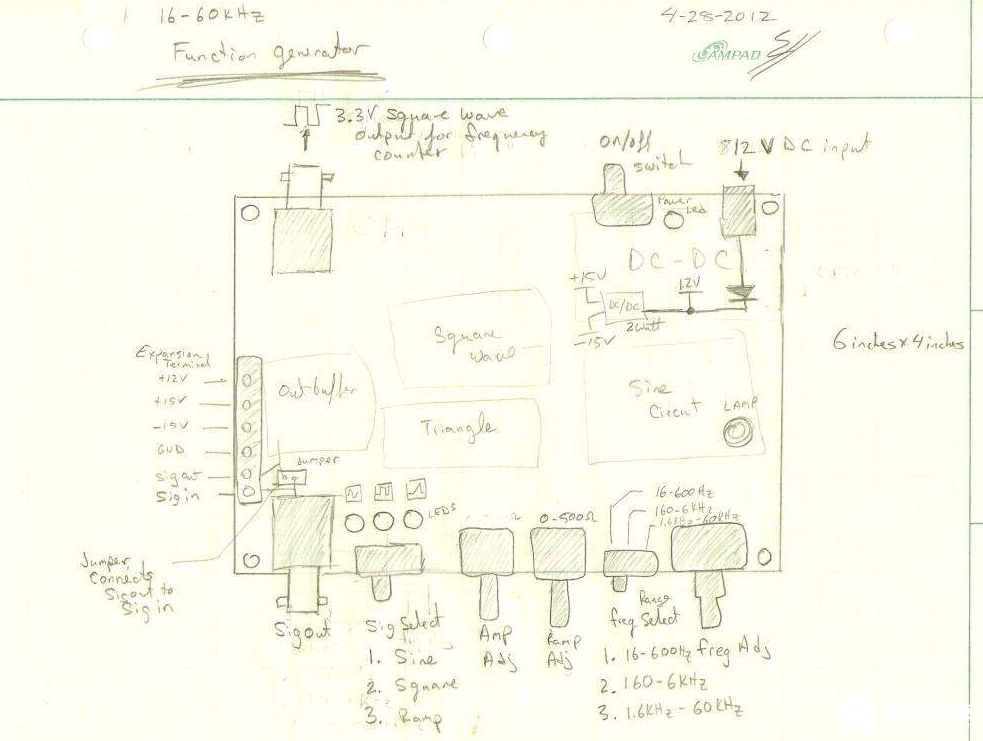 16-60KHz
4-28-2012
Function generator
AMPAD
3.3V Square wave
output for frequency
counter
on/off
switch
12 V DC input
Power
Led
DC-DC
+15V
12V
DC/DC
2Watt
-15V
Square
wave
6 inches x 4 inches
Expansion
Terminal
+12V
+15V
-15V
GND
sigout
Sig in
Outbuffer
Sine
Circut
LAMP
Triangle
Jumper
LEDS
0-500Ω
16-600Hz
160-6KHz
1.6KHz-60KHz
Jumper,
Connects
Sigout to
Sig in
Sigout
Sig Select
1. Sine
2. Square
3. Ramp
Amp
Adj
Ramp
Adj
Range
freq Select
1. 16-600Hz
2. 160-6KHz
3. 1.6KHz-60KHz
freq Adj